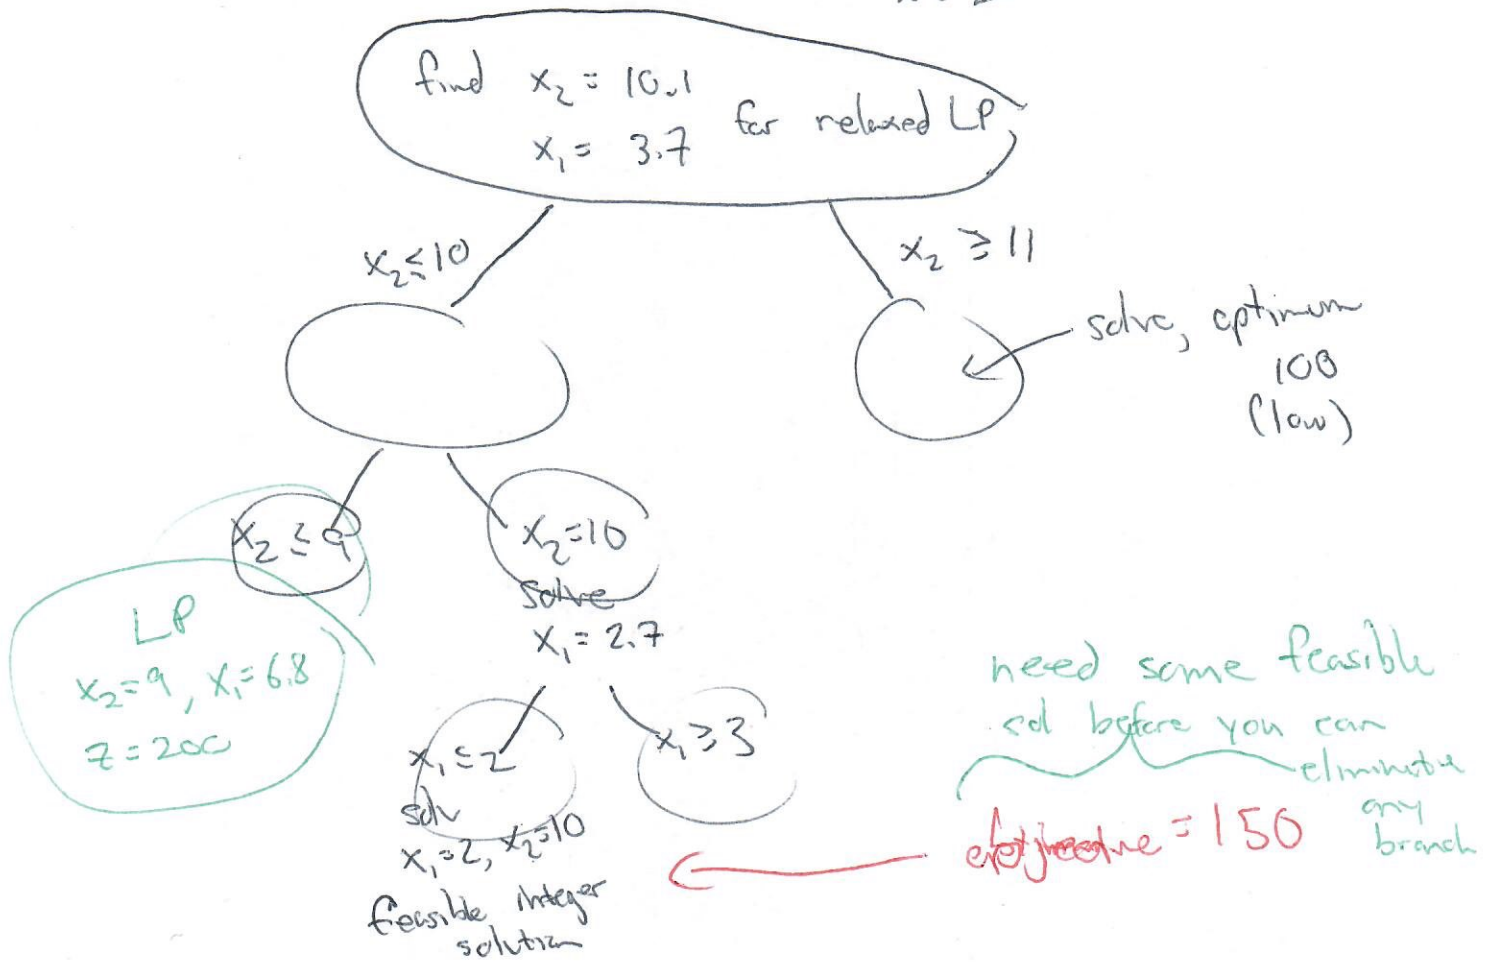 find x₂ = 10.1
x₁ = 3.7 for relaxed LP,
x₂ ≤ 10
x₂ ≥ 11
solve, optimum
100
(low)
x₂ ≤ 9
x₂=10
solve
x₁ = 2.7
LP
x₂=9, x₁=6.8
z = 200
x₁ ≤ 2
solv
x₁=2, x₂=10
feasible integer
solution
x₁ ≥ 3
need some feasible
sol before you can
eliminate
any
branch
= 150